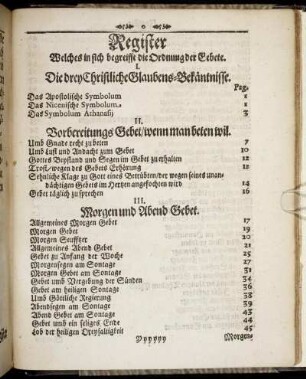 0
Register
Welches in sich begreiffe die Ordnung der Gebete.
I.
Die drey Christliche Glaubens-Bekäntnisse.
Pag.
Das Apostolische Symbolum 1
Das Nicenische Symbolum 2
Das Symbolum Athanasij 3
II.
Vorbereitungs Gebet/wenn man beten wil.
Umb Gnade recht zu beten 7
Umb lust und Andacht zum Gebet 10
Gottes Beystand und Segen im Gebet zu erhalten 12
Trost/wegen des Gebets Erhörung 12
Sehnliche Klage zu Gott eines Betrübten/der wegen seines unan-
dächtigen Gebets im Hertzen angefochten wird 14
Gebet täglich zu sprechen 16
III.
Morgen und Abend Gebet.
Allgemeines Morgen Gebet 17
Morgen Gebet 19
Morgen Seufftzer
Allgemeines Abend Gebet
Gebet zu Anfang der Woche
Morgensegen am Sontage
Morgen Gebet am Sontage
Gebet umb Vergebung der Sünden
Gebet am heiligen Sontage
Umb Göttliche Regierung 38
Abendsegen am Sontage 39
Abend Gebet am Sontage
Gebet umb ein seliges Ende 44
Lob der heiligen Dreyfaltigkeit 45
Morgen-